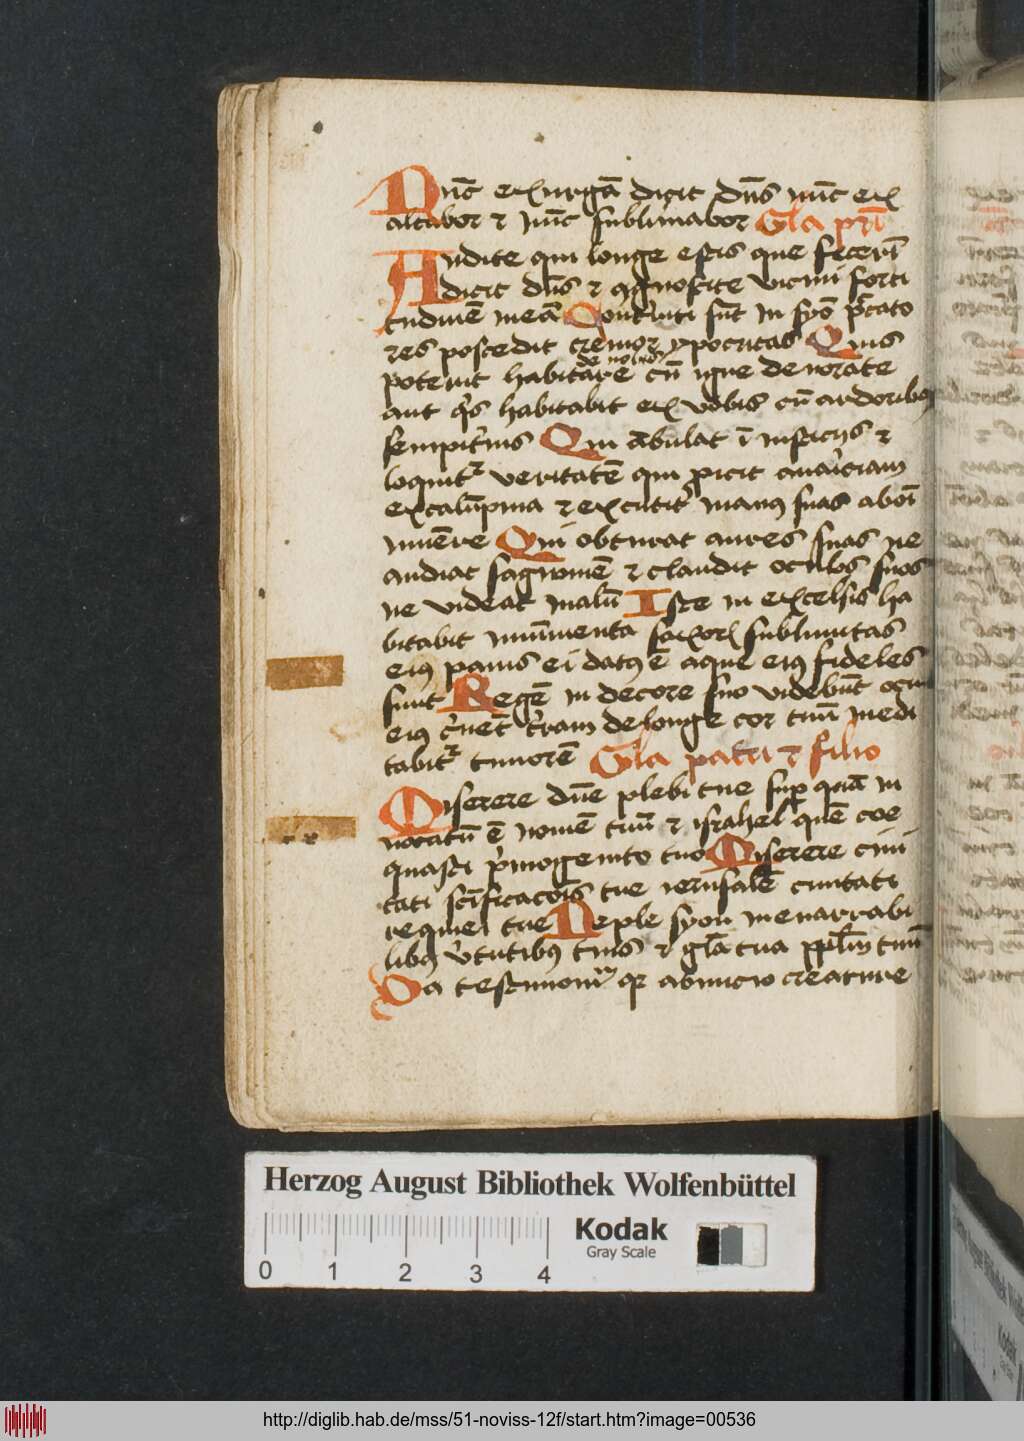 Nūc exurgā dicit dn̄s nūc ex
altabor ⁊ nūc sublimabor Gla pr̄i
Audite qui longe estis que fecerī
dicit dn̄s ⁊ ꝯgnoscite vicini forti
tudinē meā Conterriti sūt in syō p̄cato
res possedit tremor ypocritas Quis
poterit habitare cū igne deuorāte
de nobis
aut q̄s habitabit ex vobis cū ardoribꝰ
sempit̄nis Qui ābulat ī iusticijs ⁊
loquitᷣ veritatē qui ꝓicit auariciam
ex calūpnia ⁊ excutit manꝰ suas ab oī
munēre Qui obturat aures suas ne
audiat sāgwinē ⁊ claudit oculos suos
ne videat malū Iste in excelsis ha
bitabit munimenta saxorꝝ sublimitas
eiꝰ panis ei datꝰ ē aque eiꝰ fideles
sunt Regē in decore suo videbūt oculi
eiꝰ c̄nēt t̄ram de longe cor tuū medi
tabitᷣ timorē Gla patri ⁊ filio
Miserere dn̄e plebi tue sup quā in
uocatū ē nomē tuū ⁊ israhel quē coe
quasti p̄mogenito tuo Miserere ciui
tati sc̄ificacōis tue ierusalē ciuitati
requiei tue Reple syon inenarrabi
libꝰ v̄tutibꝰ tuis ⁊ glā tua ppl̄m tuū
Da testimoniū qꝛ ab inicio creature
Herzog August Bibliothek Wolfenbüttel
Kodak
Gray Scale
0 1 2 3 4
http://diglib.hab.de/mss/51-noviss-12f/start.htm?image=00536